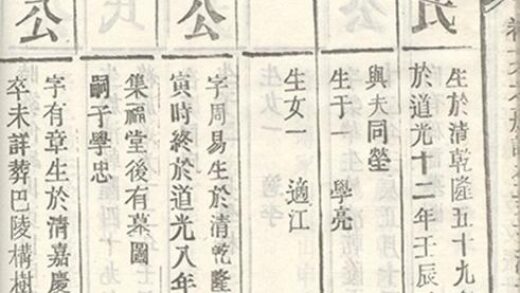 氏
生於清乾隆五十九年
於道光十二年壬辰
與夫同塋
生子一　學亮
生女一　適江
公
字周易生於清乾隆
寅時終於道光八年
集福堂後有墓圖
嗣子學忠
公
字有章生於清嘉慶
卒未詳葬巴陵構樹